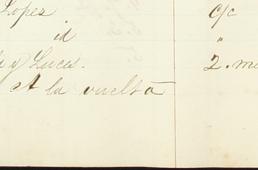 Lopez c/c
id "
y Lucas. 2. m
A la vuelta